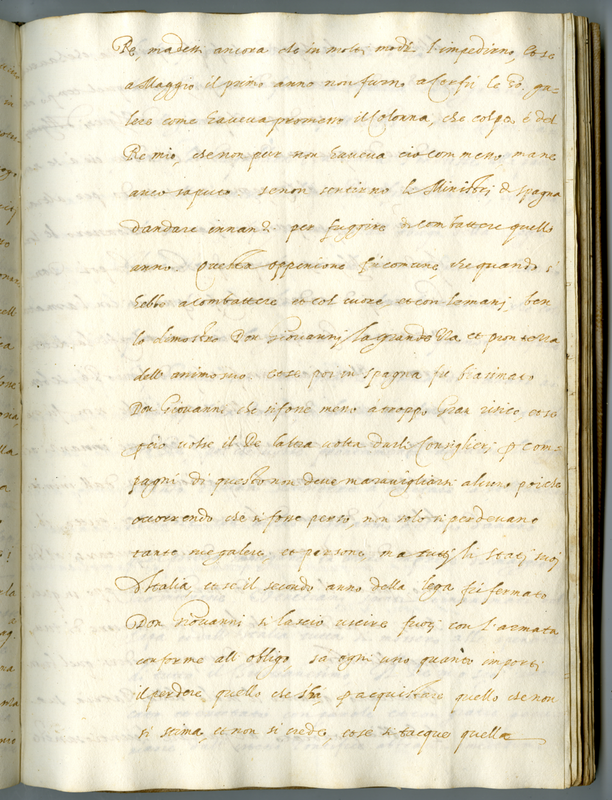 Re, ma detti ancora che in molti modi l'impedirno, et se
a Maggio il primo anno non furno a Corfù le 50. ga-
lere come haveva promesso il Colonna, che colpa è del
Re mio, che non pure non haveva ciò commesso ma ne
anco saputo se non sentirno li Ministri di Spagna
d'andare innanzi per fuggire di combattere quello
anno. Questa oppenione fù comune che quando si
hebbe a combattere et col cuore, et con le mani ben
lo dimostrò Don Giovanni la grandezza, et prontezza
dell'animo suo. et se poi in Spagna fu biasimato
Don Giovanni che si fosse messo à troppo gran risico, et se
perciò volse il Re la terza volta darli Consiglieri per com-
pagni di questo non deve maravigliarsi alcuno poiche
occorrendo che si fosse perso, non solo si perdevano
tante galere, et persone, ma tutti li stati suoi
d'Italia, et se il secondo anno della lega fù fermato
Don Giovanni si lasciò uscire fuori con l'armata
conforme all'obligo sa ogni uno quanto importi
il perdere quello che si hà, per acquistare quello che non
si stima, et non si crede, cose si tacque quella